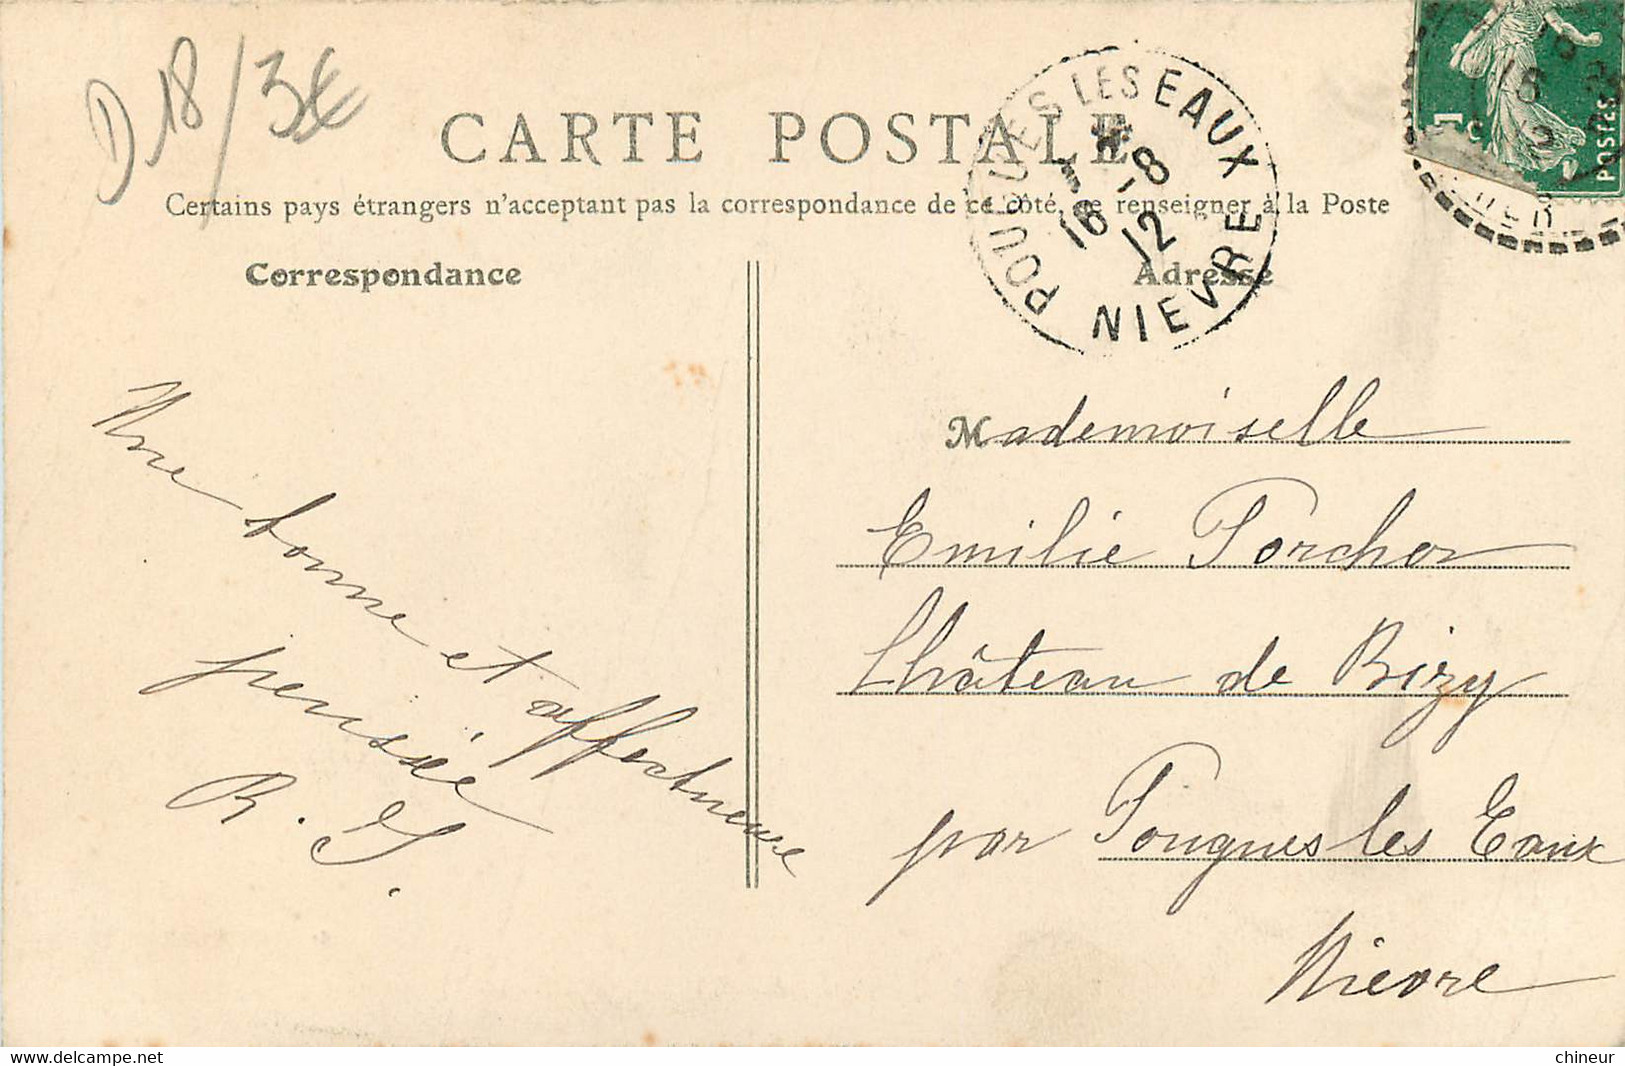 D 18/3€
CARTE POSTALE
Certains pays étrangers n'acceptant pas la correspondance de ce côté, se renseigner à la Poste
Correspondance
Adresse
POUGUES LES EAUX
16 -8
12
NIEVRE
POSTES
Une bonne et affectueuse
pensée
R. S.
Mademoiselle
Emilie Porcher
Château de Bizy
par Pougues les Eaux
Nièvre
www.delcampe.net
chineur